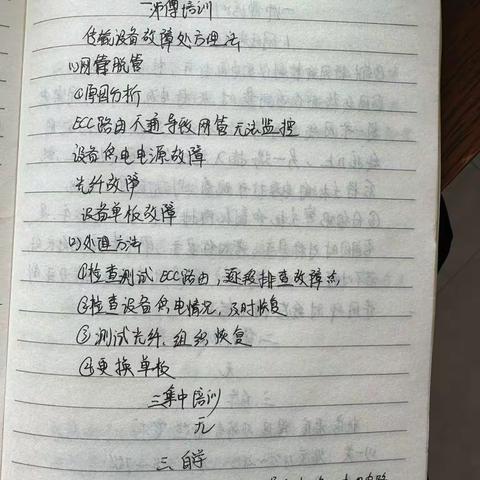 一师傅培训
传输设备故障处理方法
(1)网管脱管
①原因分析
ECC路由不通导致网管无法监控
设备供电电源故障
光纤故障
设备单板故障
(2)处理方法
①检查测试ECC路由,逐段排查故障点
②检查设备供电情况,及时恢复
③测试光纤.组织恢复
④更换单板
二集中培训
无
三自学